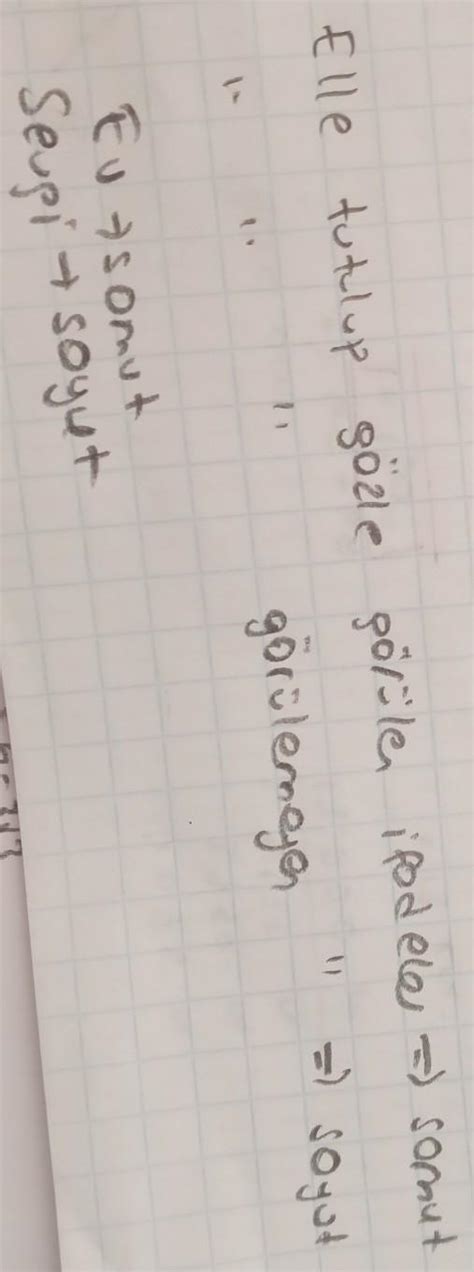 Elle tutulup gözle görülen ifadeler => somut
" " " görülemeyen " => soyut
Ev → somut
Sevgi → soyut